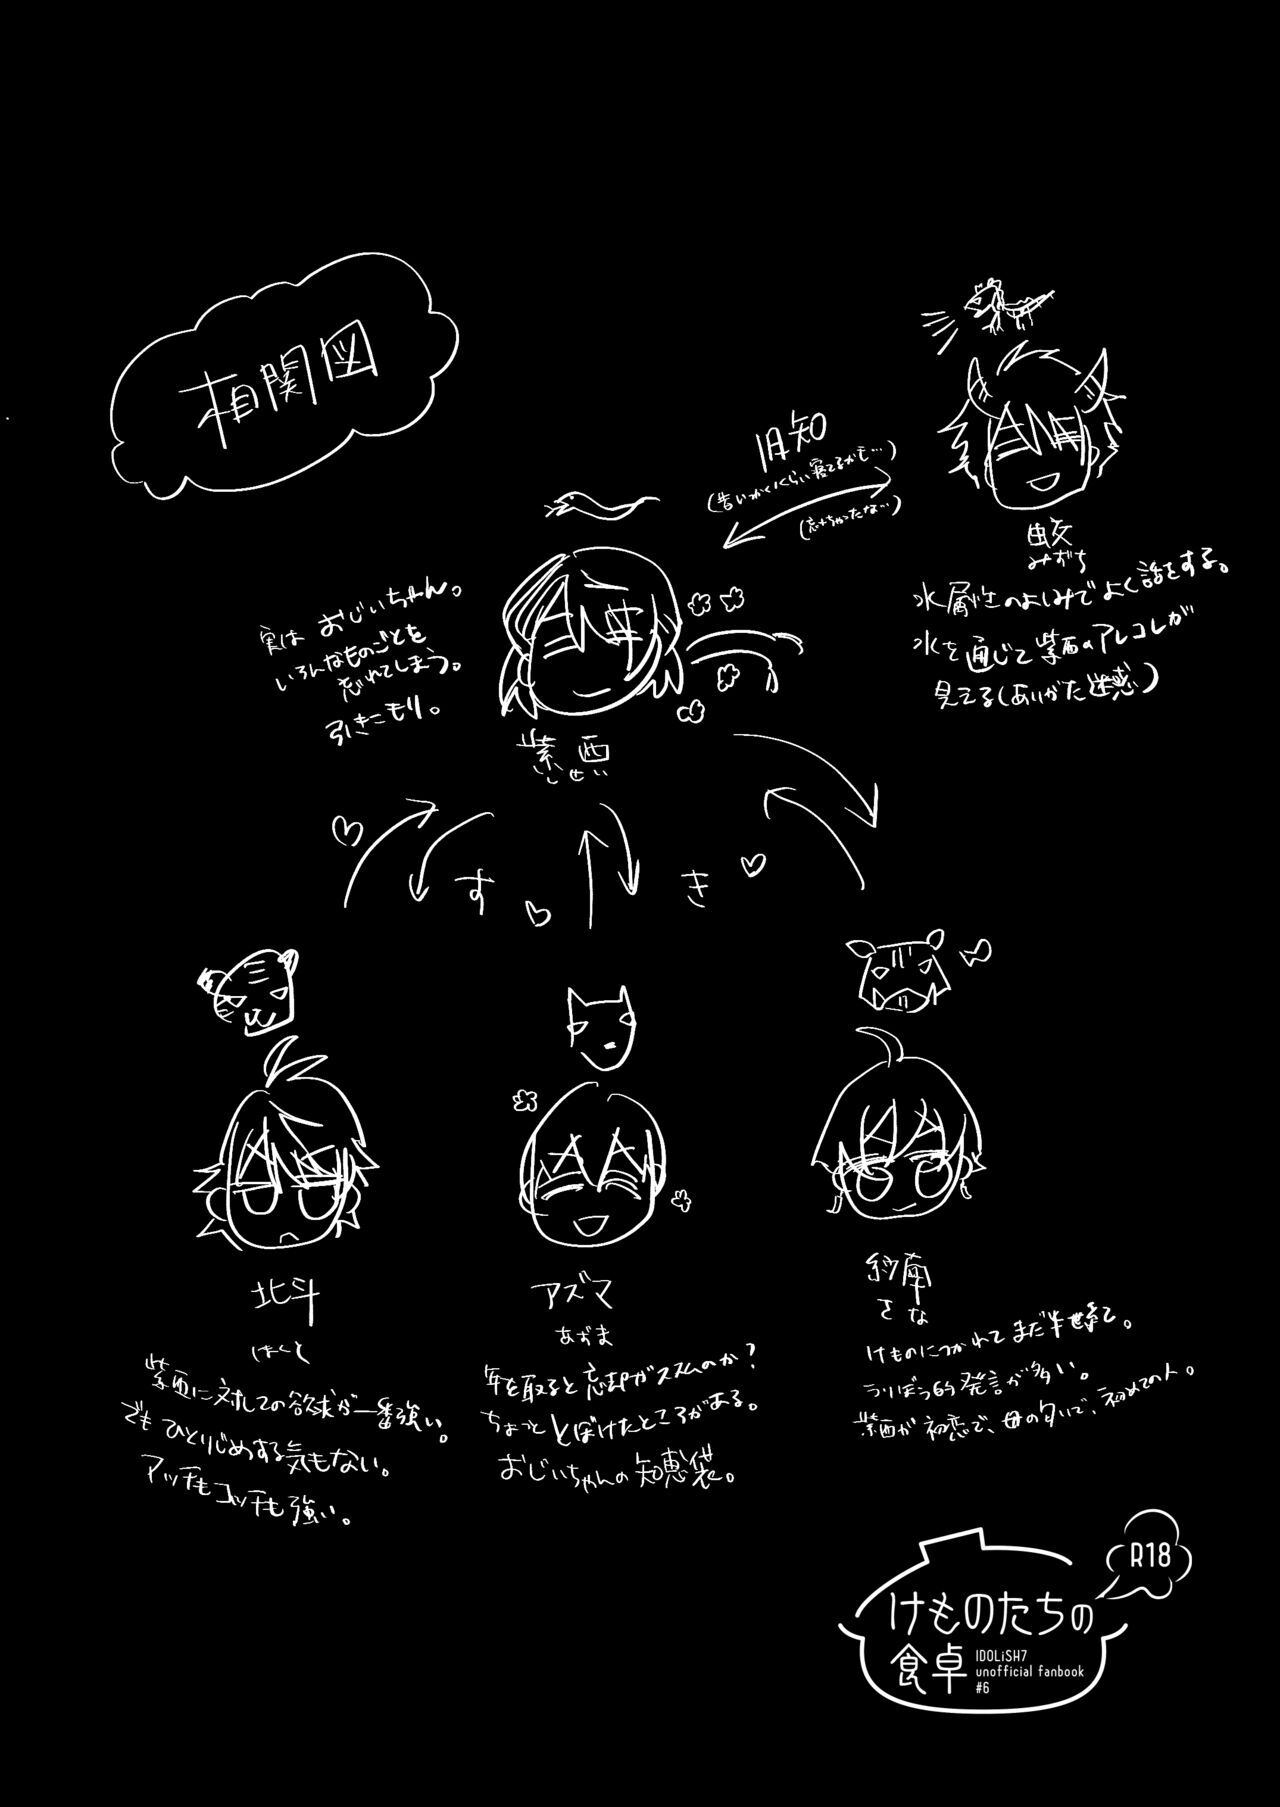 相関図
旧知
(昔いかく1くらい寝てるかも…)
(忘れちゃったな…)
蛟
みずち
水属性のよしみでよく話をする。
水を通じて紫西のアレコレが
見てる(ありがた迷惑)
実は おじいちゃん。
いろんなものごとを
忘れてしまう。
引きこもり。
紫西
しせい
す
き
北斗
ほくと
紫西に対しての欲求が一番強い。
でもひとりじめする気もない。
アッチもコッチも強い。
アズマ
あずま
年を取ると忘却がススムのか?
ちょっととぼけたところがある。
おじいちゃんの知恵袋。
紗南
さな
けものにつかれてまだ半世紀。
うりぼう的発言が多い。
紫西が初恋で、母の匂いで、初めての人。
R18
けものたちの
食卓
IDOLiSH7
unofficial fanbook
#6